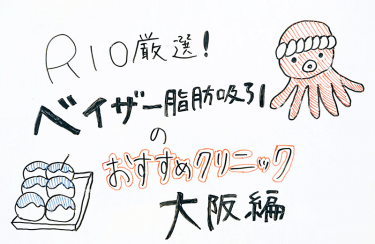 RIO厳選!
ベイザー脂肪吸引
の
おすすめクリニック
大阪編